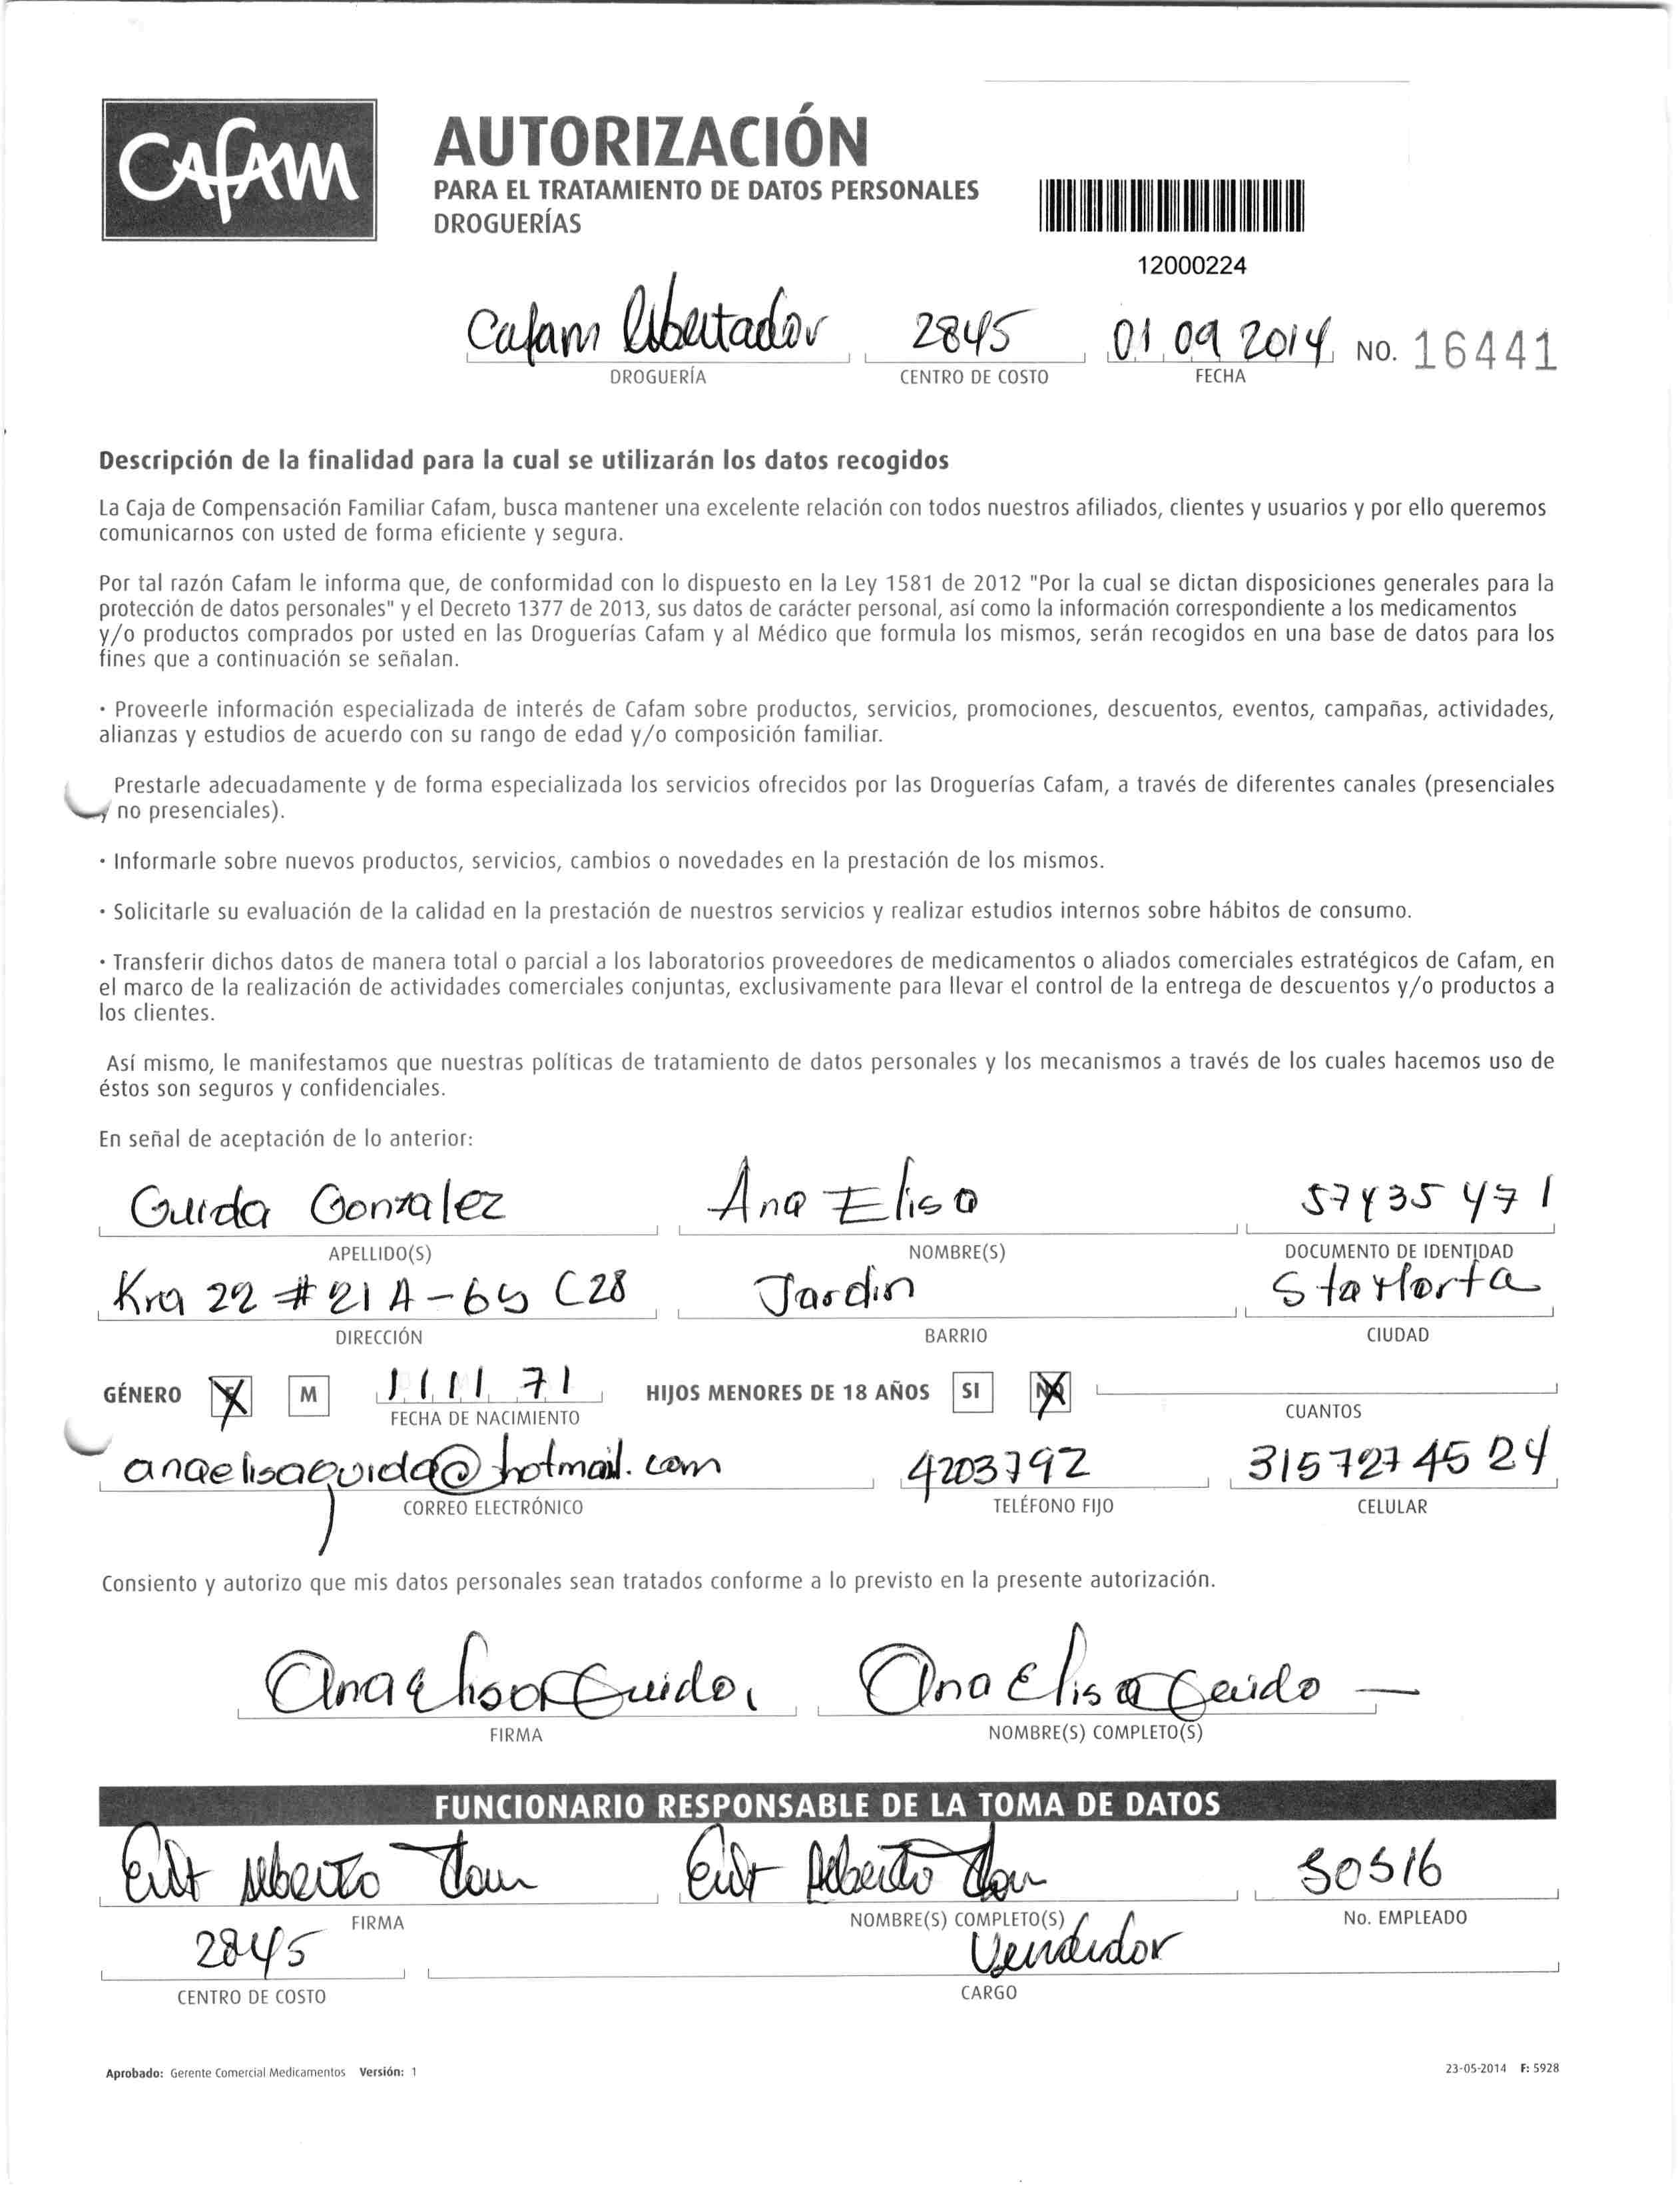 CAFAM
AUTORIZACIÓN
PARA EL TRATAMIENTO DE DATOS PERSONALES
DROGUERÍAS
12000224
Cafam Libertador 2845 01 09 2014 NO. 16441
DROGUERÍA CENTRO DE COSTO FECHA
Descripción de la finalidad para la cual se utilizarán los datos recogidos
La Caja de Compensación Familiar Cafam, busca mantener una excelente relación con todos nuestros afiliados, clientes y usuarios y por ello queremos
comunicarnos con usted de forma eficiente y segura.
Por tal razón Cafam le informa que, de conformidad con lo dispuesto en la Ley 1581 de 2012 "Por la cual se dictan disposiciones generales para la
protección de datos personales" y el Decreto 1377 de 2013, sus datos de carácter personal, así como la información correspondiente a los medicamentos
y/o productos comprados por usted en las Droguerías Cafam y al Médico que formula los mismos, serán recogidos en una base de datos para los
fines que a continuación se señalan.
· Proveerle información especializada de interés de Cafam sobre productos, servicios, promociones, descuentos, eventos, campañas, actividades,
alianzas y estudios de acuerdo con su rango de edad y/o composición familiar.
Prestarle adecuadamente y de forma especializada los servicios ofrecidos por las Droguerías Cafam, a través de diferentes canales (presenciales
y no presenciales).
· Informarle sobre nuevos productos, servicios, cambios o novedades en la prestación de los mismos.
· Solicitarle su evaluación de la calidad en la prestación de nuestros servicios y realizar estudios internos sobre hábitos de consumo.
· Transferir dichos datos de manera total o parcial a los laboratorios proveedores de medicamentos o aliados comerciales estratégicos de Cafam, en
el marco de la realización de actividades comerciales conjuntas, exclusivamente para llevar el control de la entrega de descuentos y/o productos a
los clientes.
Así mismo, le manifestamos que nuestras políticas de tratamiento de datos personales y los mecanismos a través de los cuales hacemos uso de
éstos son seguros y confidenciales.
En señal de aceptación de lo anterior:
Guida Gonzalez Ana Elisa 57435471
APELLIDO(S) NOMBRE(S) DOCUMENTO DE IDENTIDAD
Kra 22 # 21 A - 65 C28 Jardin
DIRECCIÓN BARRIO CIUDAD
GÉNERO F M 11 11 71 HIJOS MENORES DE 18 AÑOS SI NO
FECHA DE NACIMIENTO CUANTOS
anaelisaguida@hotmail.com 4203792 3157274524
CORREO ELECTRÓNICO TELÉFONO FIJO CELULAR
Consiento y autorizo que mis datos personales sean tratados conforme a lo previsto en la presente autorización.
Ana Elisa Guida Ana Elisa Guida
FIRMA NOMBRE(S) COMPLETO(S)
FUNCIONARIO RESPONSABLE DE LA TOMA DE DATOS
Alberto Alberto 50516
FIRMA NOMBRE(S) COMPLETO(S) No. EMPLEADO
2845 Vendedor
CENTRO DE COSTO CARGO
Aprobado: Gerente Comercial Medicamentos Versión: 1 23-05-2014 F: 5928